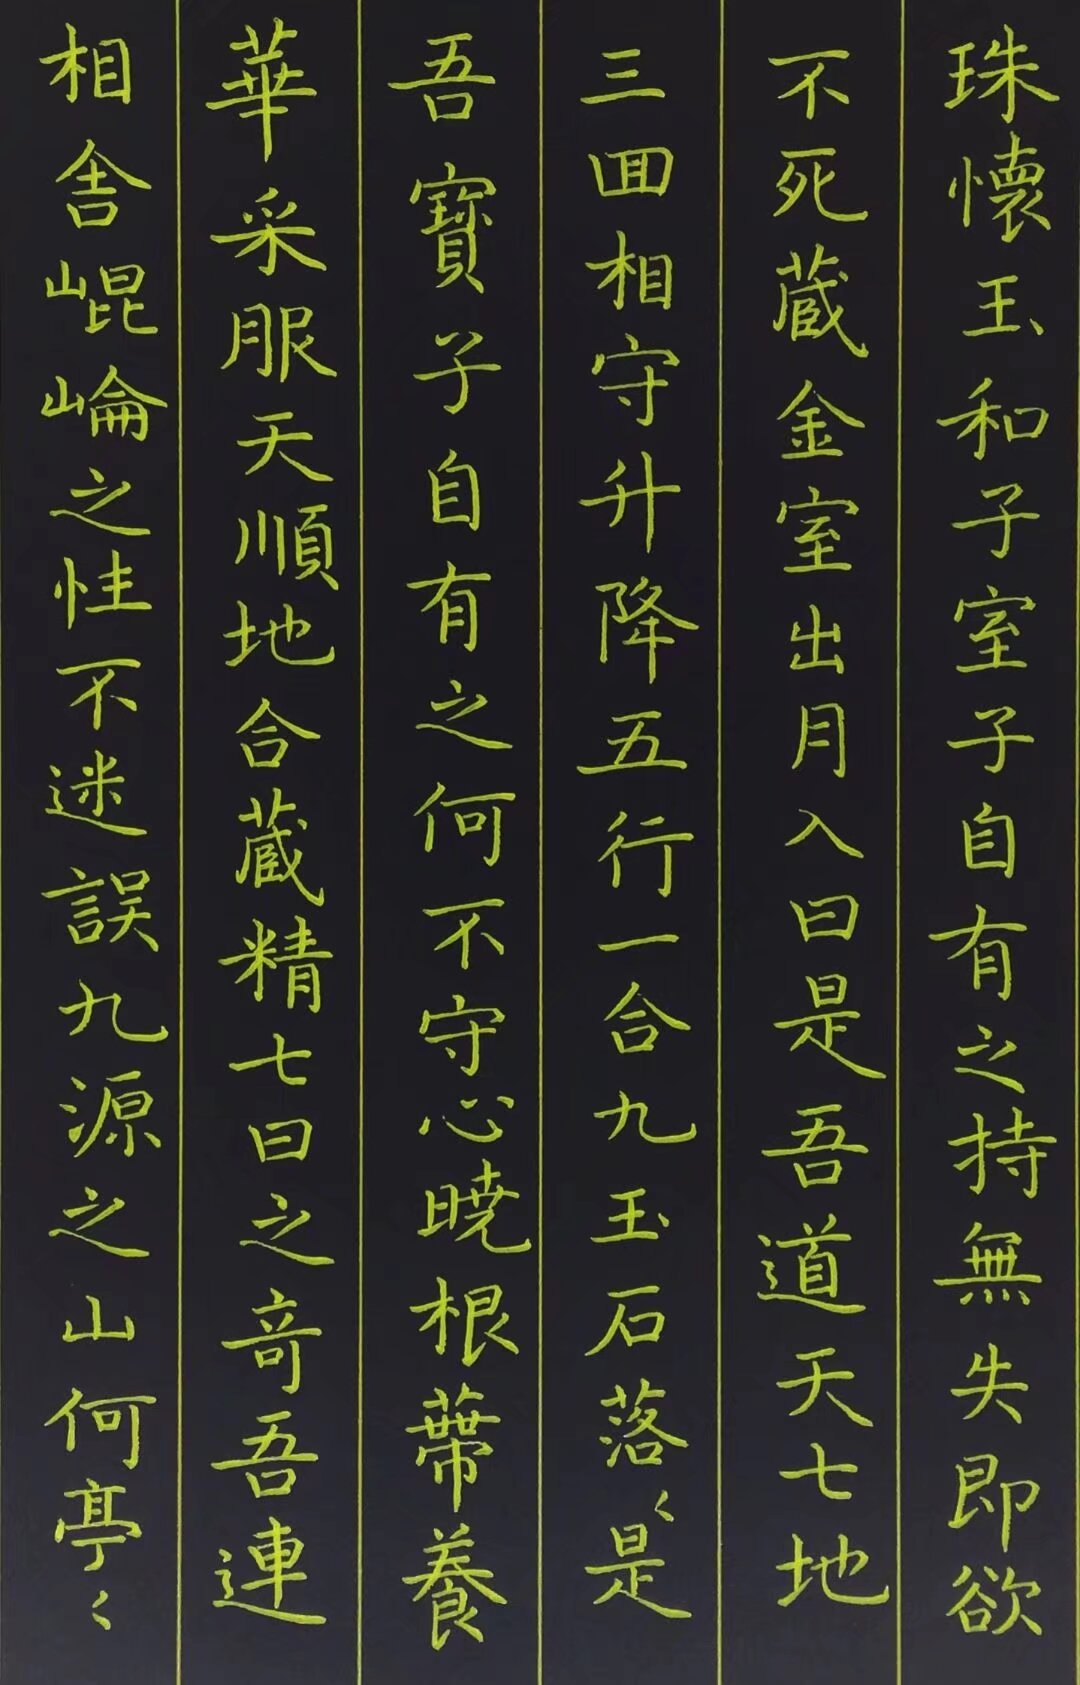 珠懷玉和子室子自有之持無失即欲
不死蔵金室出月入曰是吾道天七地
三囬相守升降五行一合九玉石落〻是
吾寶子自有之何不守心曉根蔕養
華采服天順地合蔵精七日之竒吾連
相舎崐崘之性不迷誤九源之山何亭〻